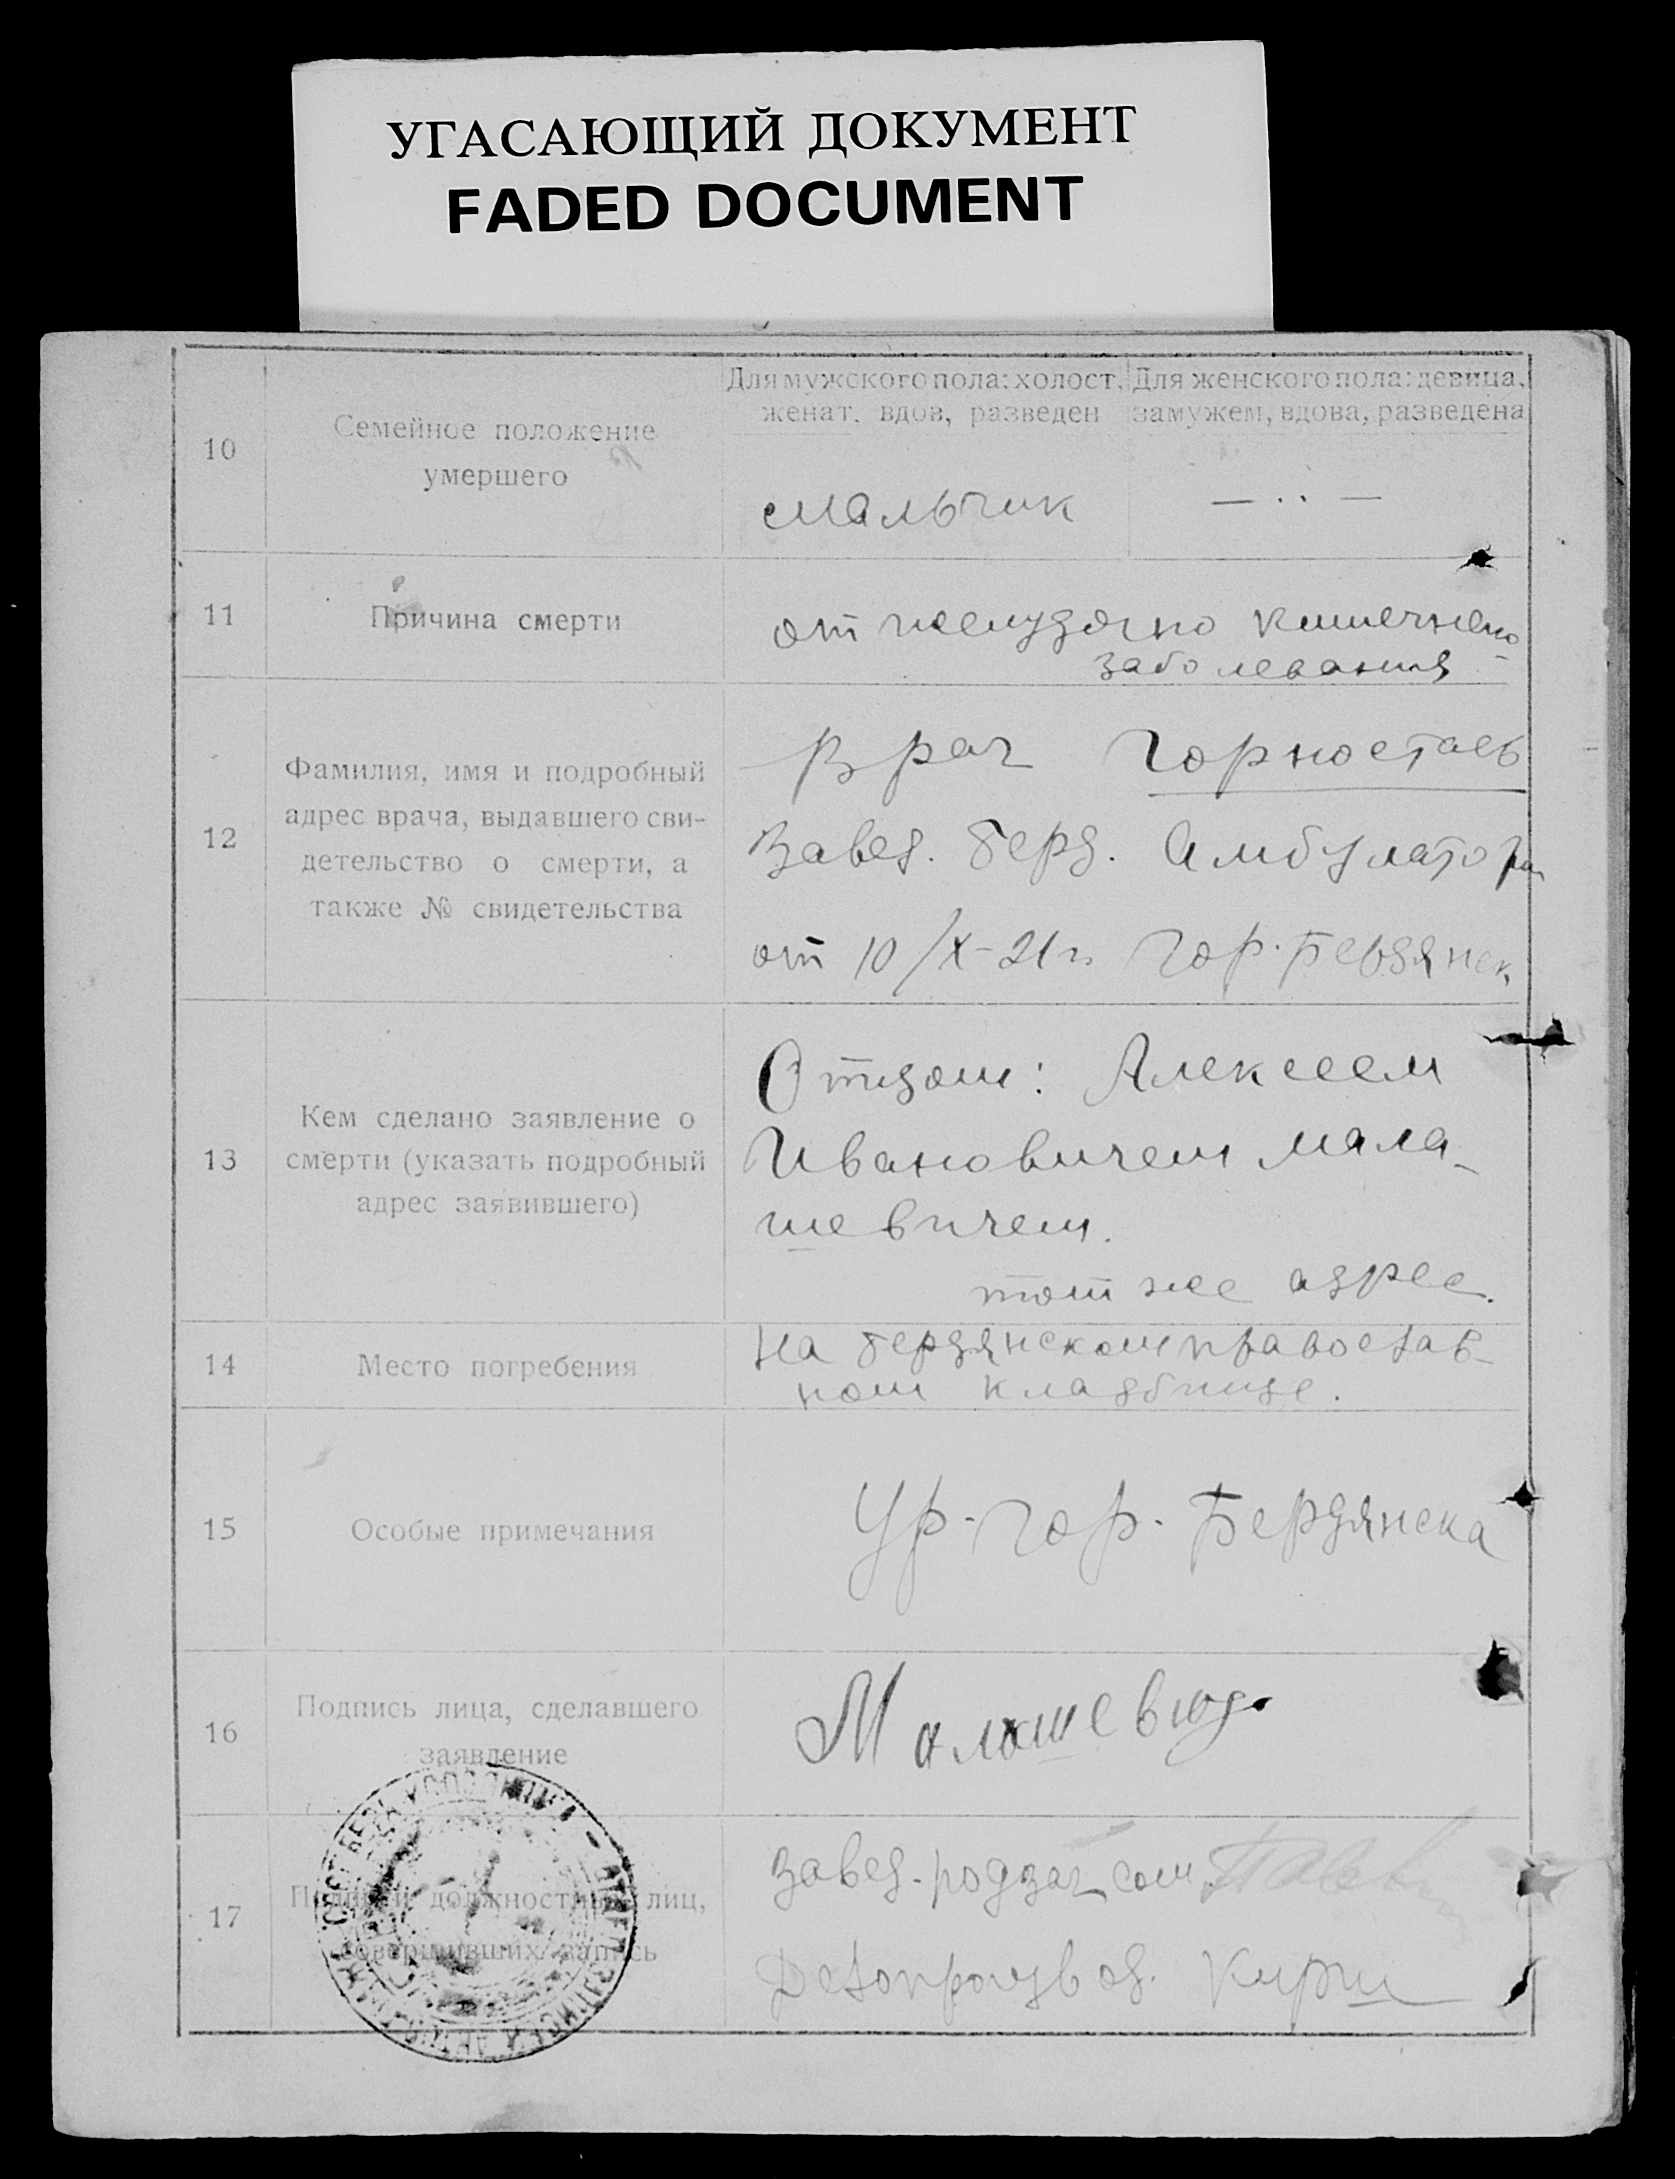 УГАСАЮЩИЙ ДОКУМЕНТ
FADED DOCUMENT
10
Семейное положение
умершего
Для мужского пола: холост,
женат, вдов, разведен
Для женского пола: девица,
замужем, вдова, разведена
мальчик
— ·· —
11
Причина смерти
от желудочно кишечного
заболевания
12
Фамилия, имя и подробный
адрес врача, выдавшего сви-
детельство о смерти, а
также № свидетельства
Врач Горностаев
Завед. берд. Амбулатори
от 10/X-21 г. гор. Бердянск
13
Кем сделано заявление о
смерти (указать подробный
адрес заявившего)
Отцом: Алексеем
Ивановичем Мала-
шевичем.
тот же адрес.
14
Место погребения
на бердянском православ-
ном кладбище.
15
Особые примечания
Ур. гор. Бердянска
16
Подпись лица, сделавшего
заявление
17
Подписи должностных лиц,
совершивших запись
Завед. подзагсом
Делопроизвод. Кирш